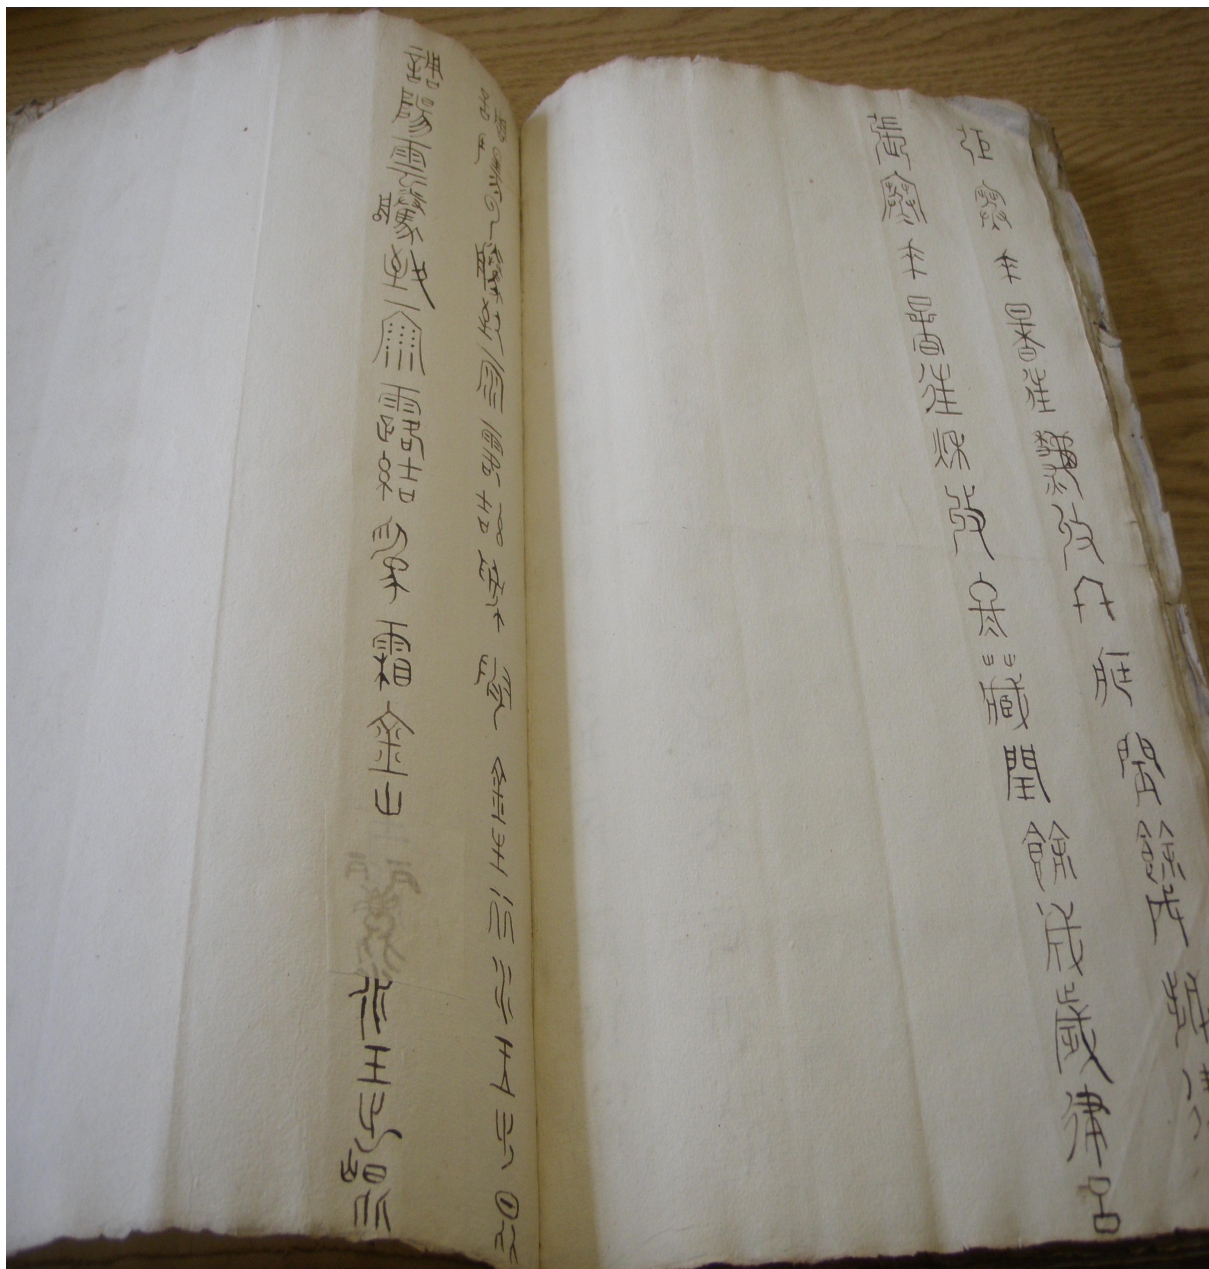 張寒來暑往秋收冬藏閏餘成歲律
張寒來暑往秋收冬藏閏餘成歲律呂
調陽雲騰致雨露結為霜金生麗水玉出崑
調陽雲騰致雨露結為霜金生麗水玉出崑